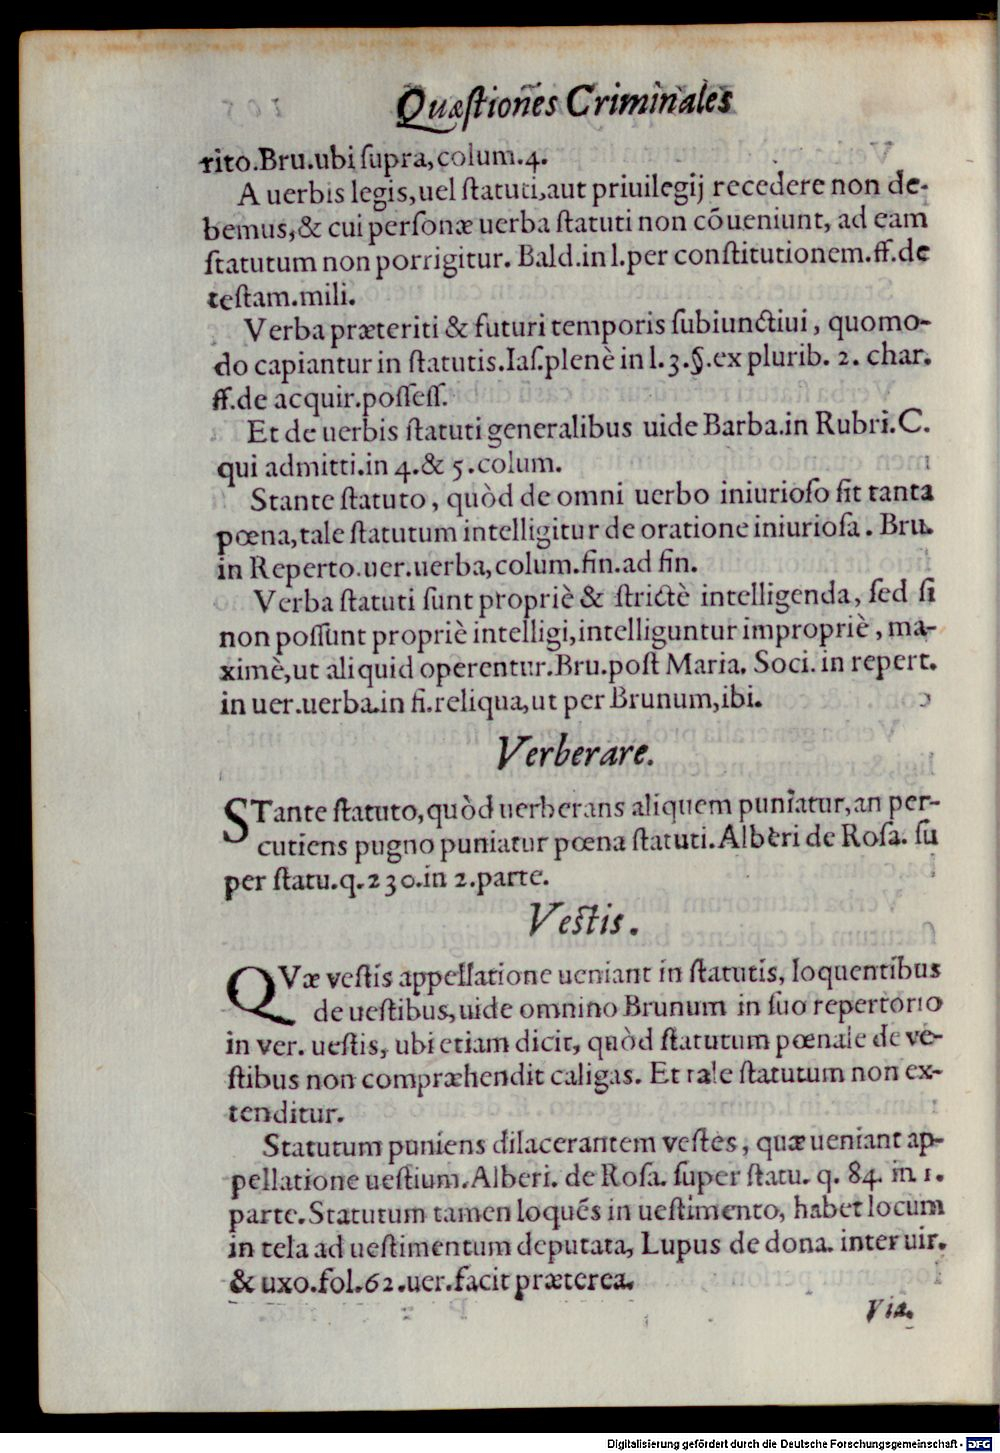 Quæſtiones Criminales
rito.Bru.ubi ſupra,colum.4.
A uerbis legis,uel ſtatuti,aut priuilegij recedere non de-
bemus,& cui perſonæ uerba ſtatuti non cõueniunt, ad eam
ſtatutum non porrigitur. Bald.in l.per conſtitutionem.ff.de
teſtam.mili.
Verba præteriti & futuri temporis ſubiunctiui, quomo-
do capiantur in ſtatutis.Iaſ.plenè in l.3.§.ex plurib. 2. char.
ff.de acquir.poſſeſſ.
Et de uerbis ſtatuti generalibus uide Barba.in Rubri.C.
qui admitti.in 4.& 5.colum.
Stante ſtatuto, quòd de omni uerbo iniurioſo ſit tanta
pœna,tale ſtatutum intelligitur de oratione iniurioſa. Bru.
in Reperto.uer.uerba,colum.fin.ad fin.
Verba ſtatuti ſunt propriè & ſtrictè intelligenda, ſed ſi
non poſſunt propriè intelligi,intelliguntur impropriè, ma-
ximè,ut aliquid operentur.Bru.poſt Maria. Soci. in repert.
in uer.uerba.in fi.reliqua,ut per Brunum,ibi.
Verberare.
STante ſtatuto,quòd uerberans aliquem puniatur,an per-
cutiens pugno puniatur pœna ſtatuti.Alberi de Roſa. ſu
per ſtatu.q.230.in 2.parte.
Veſtis.
QVæ veſtis appellatione ueniant in ſtatutis, loquentibus
de ueſtibus,uide omnino Brunum in ſuo repertorio
in ver. ueſtis, ubi etiam dicit, quòd ſtatutum pœnale de ve-
ſtibus non compræhendit caligas. Et tale ſtatutum non ex-
tenditur.
Statutum puniens dilacerantem veſtes, quæ ueniant ap-
pellatione ueſtium.Alberi. de Roſa. ſuper ſtatu. q. 84. in 1.
parte.Statutum tamen loquẽs in ueſtimento, habet locum
in tela ad ueſtimentum deputata, Lupus de dona. inter uir.
& uxo.fol.62.uer.facit præterea.
Via.
Digitalisierung gefördert durch die Deutsche Forschungsgemeinschaft - DFG